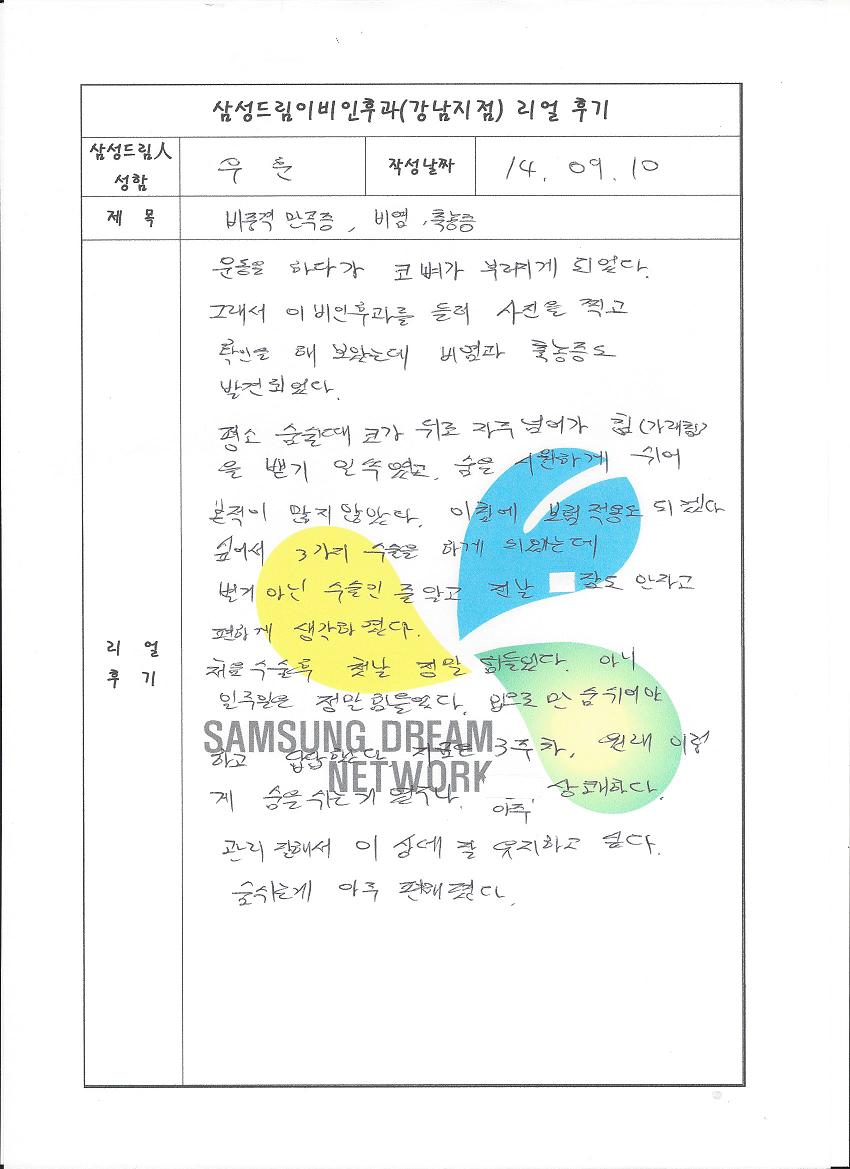 삼성드림이비인후과(강남지점) 리얼 후기
삼성드림人 성함
우 훈
작성날짜
14. 09. 10
제 목
비중격 만곡증, 비염, 축농증
리 얼 후 기
운동을 하다가 코 뼈가 부러지게 되었다.
그래서 이비인후과를 들려 사진을 찍고
확인을 해 보았는데 비염과 축농증도
발견되었다.
평소 숨쉴때 코가 뒤로 자주 넘어가 침(가래침)
을 뱉기 일쑤였고, 숨을 시원하게 쉬어
본적이 많지 않았다. 이참에 보험적용도 되겠다
싶어서 3가지 수술을 하게 되었는데
별거 아닌 수술인 줄 알고 전날 잠도 안자고
편하게 생각하였다.
처음 수술후 첫날 정말 힘들었다. 아니
일주일은 정말 힘들었다. 입으로만 숨쉬어야
하고 답답했다. 지금은 3주차, 원래 이렇
게 숨을 쉬는거 였구나. 아주 상쾌하다.
관리 잘해서 이 상태 잘 유지하고 싶다.
숨쉬는게 아주 편해졌다.
SAMSUNG DREAM
NETWORK